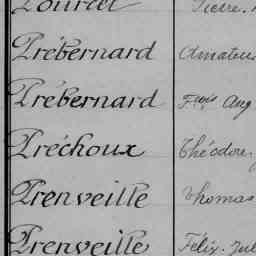 Pourcel Pierre
Prébernard Amateur
Prébernard Fçois Aug
Préchoux Théodore
Prenveille Thomas
Prenveille Félix Jul